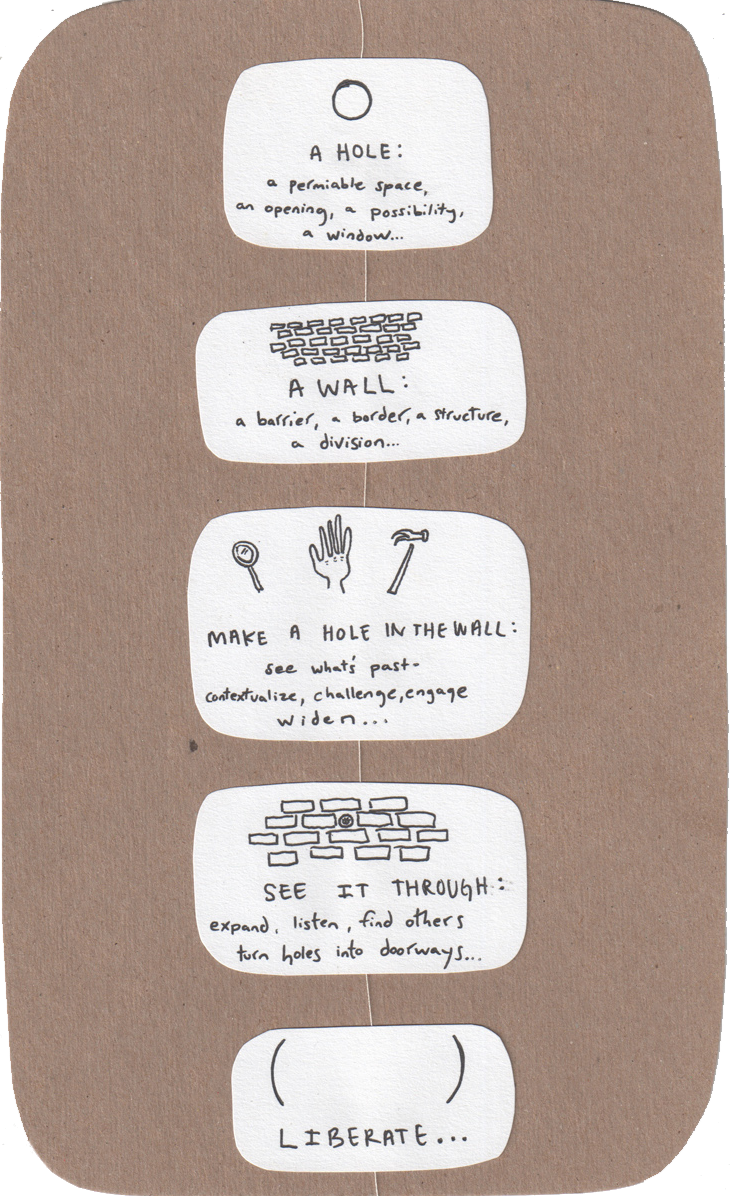 A HOLE:
a permiable space,
an opening, a possibility,
a window...
A WALL:
a barrier, a border, a structure,
a division...
MAKE A HOLE IN THE WALL:
see what's past-
contextualize, challenge, engage
widen...
SEE IT THROUGH:
expand, listen, find others
turn holes into doorways...
( )
LIBERATE...